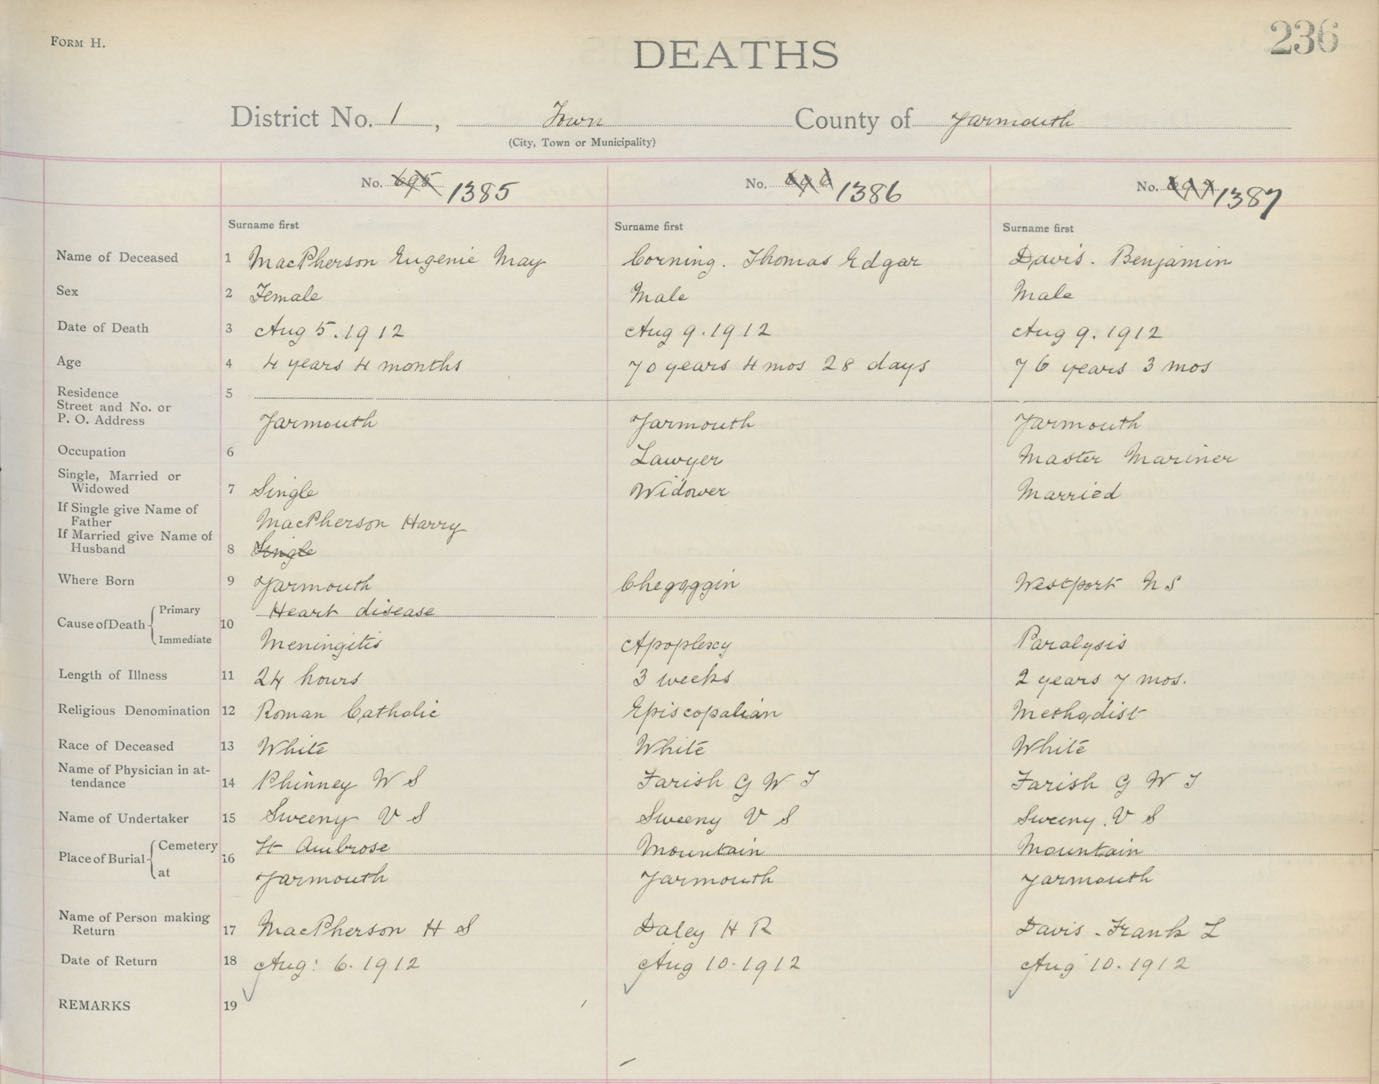 FORM H.
236
DEATHS
District No. 1, Town County of Yarmouth
(City, Town or Municipality)
No. 695 1385 No. 696 1386 No. 697 1387
Surname first Surname first Surname first
Name of Deceased 1 MacPherson Eugenie May Corning. Thomas Edgar Davis. Benjamin
Sex 2 Female Male Male
Date of Death 3 Aug 5. 1912 Aug 9. 1912 Aug 9. 1912
Age 4 4 years 4 months 70 years 4 mos 28 days 76 years 3 mos
Residence 5
Street and No. or
P. O. Address Yarmouth Yarmouth Yarmouth
Occupation 6 Lawyer Master Mariner
Single, Married or
Widowed 7 Single Widower Married
If Single give Name of
Father MacPherson Harry
If Married give Name of
Husband 8 Single
Where Born 9 Yarmouth Chegoggin Westport N S
Cause of Death Primary 10 Heart disease
Immediate Meningitis Apoplexy Paralysis
Length of Illness 11 24 hours 3 weeks 2 years 7 mos.
Religious Denomination 12 Roman Catholic Episcopalian Methodist
Race of Deceased 13 White White White
Name of Physician in at-
tendance 14 Phinney W S Farish G W T Farish G W T
Name of Undertaker 15 Sweeny V S Sweeny V S Sweeny. V S
Place of Burial Cemetery 16 St Ambrose Mountain Mountain
at Yarmouth Yarmouth Yarmouth
Name of Person making
Return 17 MacPherson H S Daley H R Davis - Frank L
Date of Return 18 Aug. 6. 1912 Aug 10. 1912 Aug 10. 1912
REMARKS 19